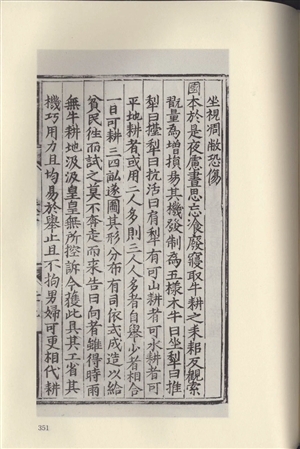 坐視凋敝恐傷
國本於是夜慮晝思忘飡廢寢取牛耕之耒耜反觀索
玩量為增損易其機發制為五樣木牛曰坐犁曰推
犁曰擡犁曰抗活曰肩犁有可山耕者可水耕者可
平地耕者或用二人多則三人人多者自舉少者相合
一日可耕三四畝遂圖其形分布有司依式成造以給
貧民徃而試之莫不奔走而來告曰向者雖得時雨
無牛耕地汲汲皇皇無所控訴今獲此具其工省其
機巧用力且均易於舉止且不拘男婦可更相代耕
351